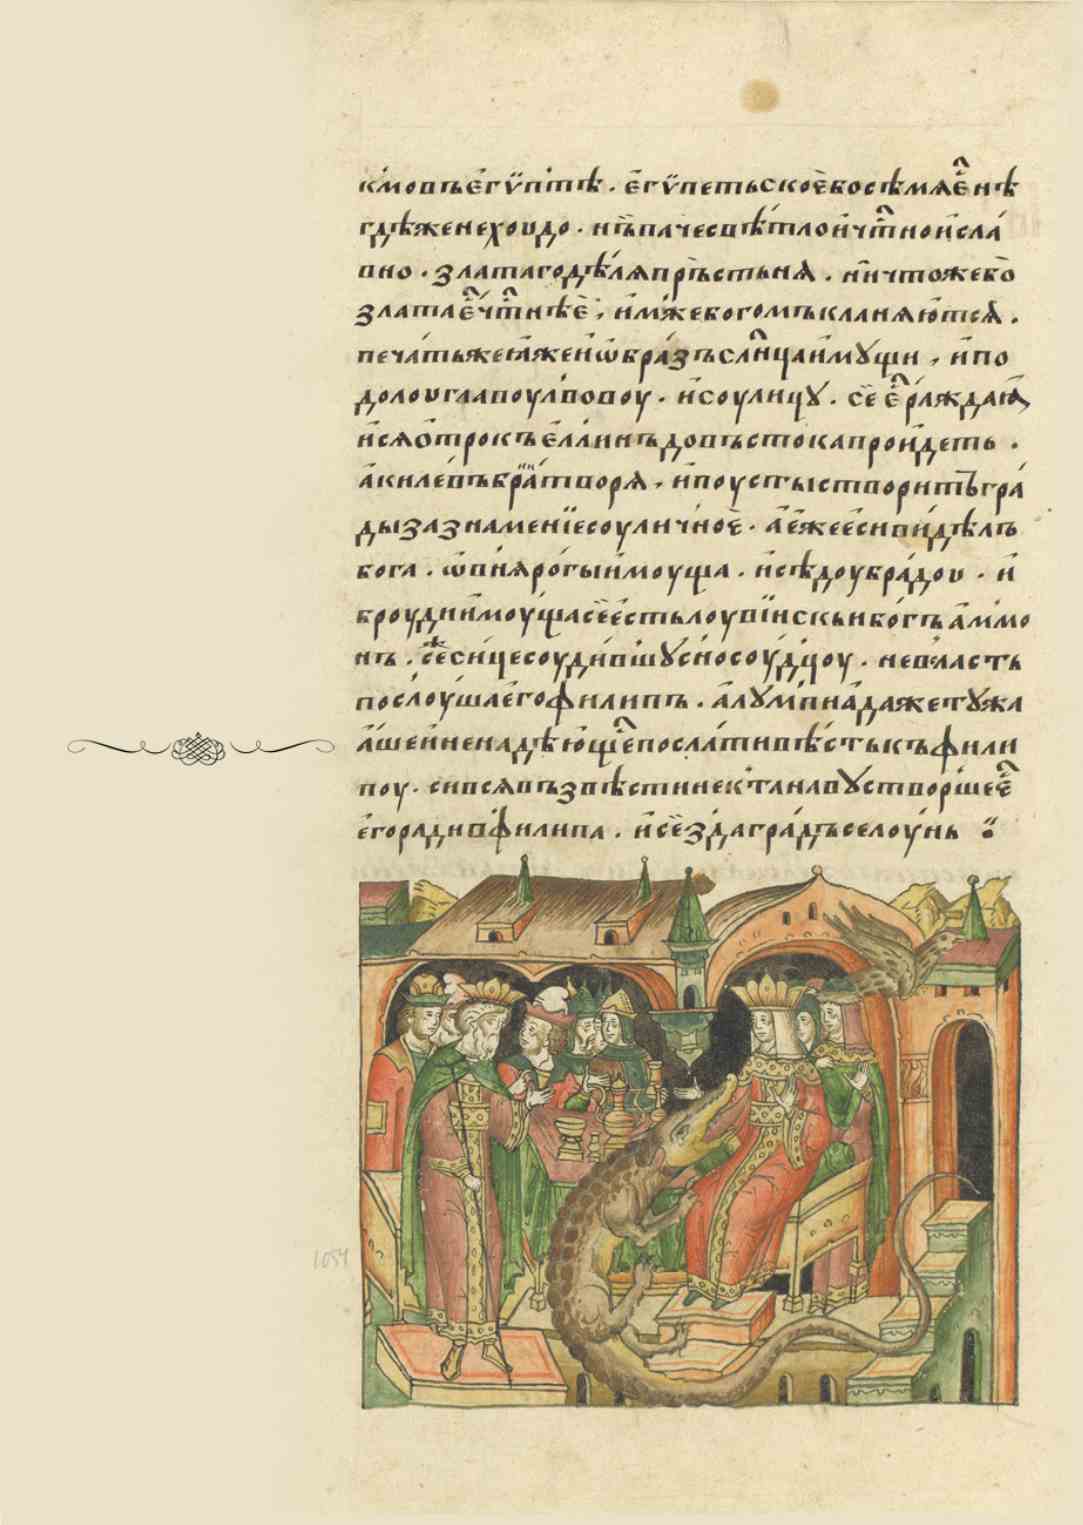 кмовъегѵптѣ. егѵпетьскоебосѣмяе҇нѣ
гдѣженехоудо. нъпачесвѣтлоичт҇ноисла
вно. златагодѣляпръстьня. ничтожебо
златае҇чт҇нѣе, имжебогомъкланяются.
печатьжеꙗжеиѡбразъслн҇цаимꙋщи, ипо
долоуглавоулвовоу. исоулицꙋ. се е҇раждаꙗ
исяотрокъеллинъдовъстокапроидеть.
акилевъбратворя, ипоустыстворитьгра
дызазнаменїесоуличное. аежеесивидѣлъ
бога. ѡвнярогыимоуща. исѣдоубрадоу. и
броудиимоущасеестьлоувїискыибогъаммо
нъ. сесицесоудившꙋсносоудцоу. невсласть
послоушаегофилиппъ. алꙋмпиадажетꙋжа
ашеиненадѣющ҇епослативѣстькъфили
поу. сивсявъзвѣстинектанавꙋствор҇шее҇
егорадивфилипа. исезда градъселоунь
1054